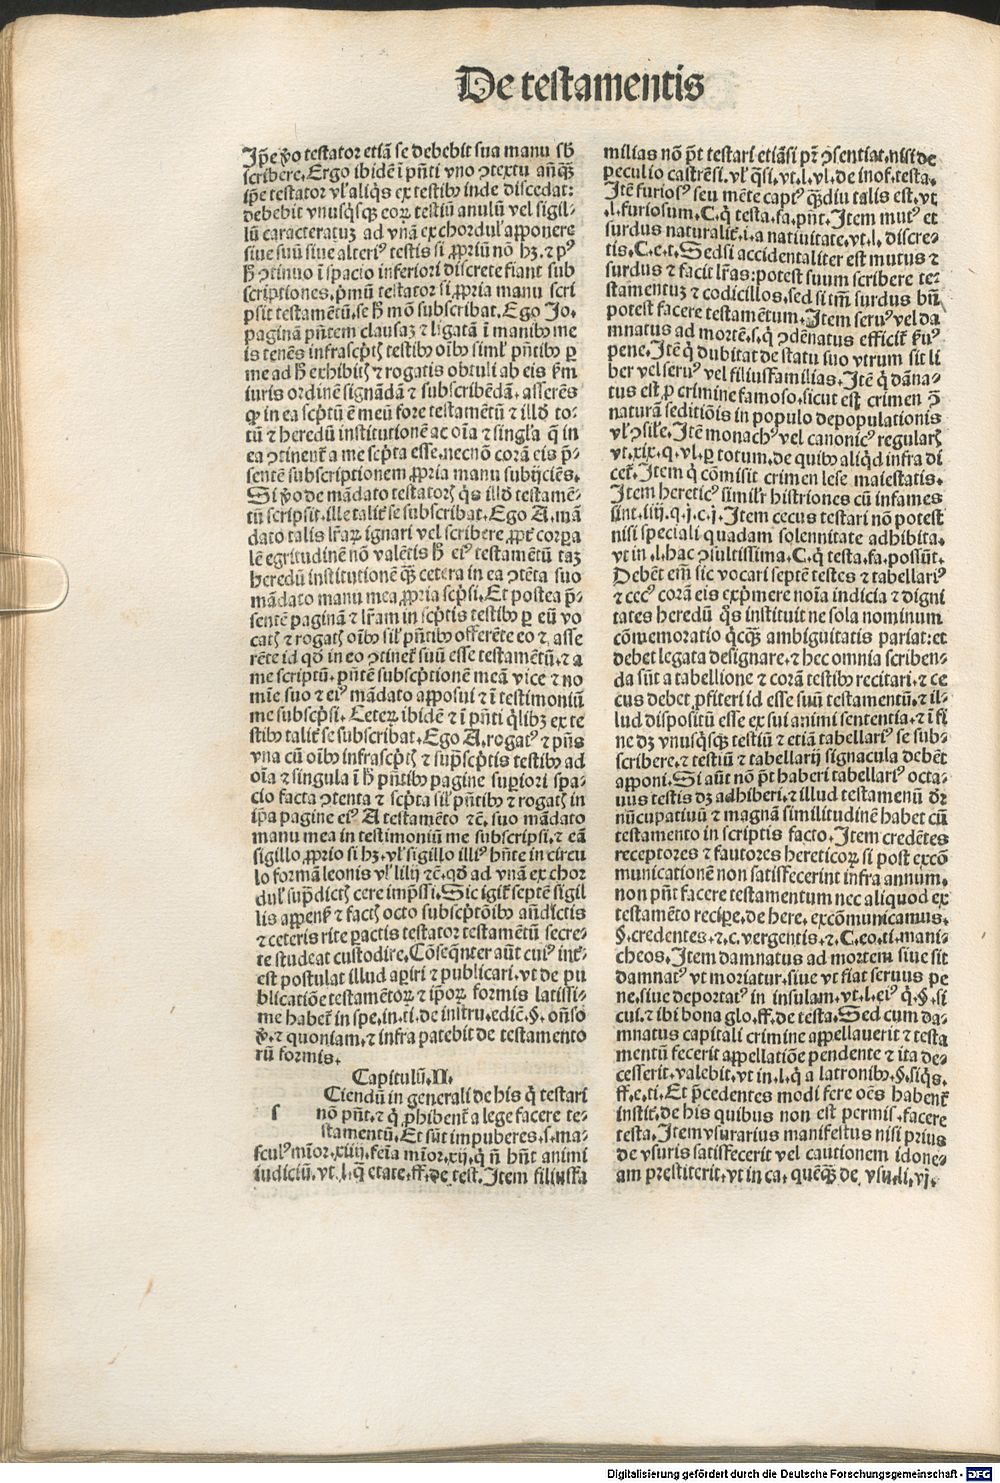 De testamentis
Ip̄e ṽo testator etiā se debebit sua manu sb̄
scribere. Ergo ibidē ī pn̄ti vno ꝯtextu anꝗ̄ꝫ
ip̄e testator vl' aliq̇s ex testibꝰ inde discedat:
debebit vnusq̇sqꝫ eoꝝ testiū anulū vel sigil⸗
lū caracteratuꝫ ad vnā ex chordul' apponere
siue suū siue alteriꝰ testis si ꝓpriū nō hꝫ. ⁊ pꝰ
h̄ ꝯtinuo ī spacio inferiori discrete fiant sub
scriptiones. p̄mū testator si ꝓpria manu scri
psit testamētū. se h̄ mō subscribat. Ego Jo.
paginā pn̄tem clausaꝫ ⁊ ligatā ī manibꝰ me
is tenēs infrascp̄tꝭ testibꝰ oībꝰ siml' pn̄tibꝰ ꝑ
me ad h̄ exhibitꝭ ⁊ rogatis obtuli ab eis ẜm
iuris ordinē signādā ⁊ subscribēdā. asserēs
ꝙ in ea scp̄tū ē meū fore testamētū ⁊ illd̄ to⸗
tū ⁊ heredū institutionē ac oīa ⁊ singl'a q̄ in
ea ꝯtinent̄ a me scp̄ta esse. necnō corā eis p̄⸗
sentē subscriptionem ꝓpria manu subijciēs.
Si ṽo de mādato testatorꝭ q̇s illd̄ testamē⸗
tū scripsit. ille talit̄ se subscribat. Ego A. mā
dato talis lr̄aꝝ ignari vel scribere ꝓpt̄ corpa
lē egritudinē nō valētis h̄ eiꝰ testamētū taꝫ
heredū institutionē ꝗ̄ꝫ cetera in ea ꝯtēta suo
mādato manu mea ꝓpria scp̄si. Et postea p̄⸗
sentē paginā ⁊ lr̄am in scp̄tis testibꝰ ꝑ eū vo
catꝭ ⁊ rogatꝭ oībꝰ sil' pn̄tibꝰ offerēte eo ⁊ asse
rēte id qd̄ in eo ꝯtinet̄ suū esse testamētū. ⁊ a
me scriptū. pn̄tē subscp̄tionē meā vice ⁊ no
mīe suo ⁊ eiꝰ mādato apposui ⁊ ī testimoniū
me subscp̄si. Ceteꝝ ibidē ⁊ ī pn̄ti q̇libꝫ ex te
stibꝰ talit̄ se subscribat. Ego A. rogatꝰ ⁊ pn̄s
vna cū oībꝰ infrascp̄tꝭ ⁊ sup̄scp̄tis testibꝰ ad
oīa ⁊ singula ī h̄ pn̄tibꝰ pagine superiori spa⸗
cio facta ꝯtenta ⁊ scp̄ta sil' pn̄tibꝰ ⁊ rogatꝭ in
ip̄a pagine eiꝰ A testamēto ⁊c̄. suo mādato
manu mea in testimoniū me subscripsi. ⁊ eā
sigillo ꝓprio si hꝫ. vl' sigillo illiꝰ hn̄te in circu
lo formā leonis vl' lilij ⁊c̄. qd̄ ad vnā ex chor
dul' sup̄dictꝭ cere imp̄ssi. Sic igit̄ septē sigil
lis appenß ⁊ factꝭ octo subscp̄tōibꝰ an̄dictis
⁊ ceteris rite ꝑactis testator testamētū secre⸗
te studeat custodire. Cōseqn̄ter aūt cuiꝰ int̄⸗
est postulat illud aꝑiri ⁊ publicari. vt de pu
blicatiōe testamētoꝝ ⁊ ip̄oꝝ formis latissi⸗
me habet̄ in spe. in. ti. de instru. ediē. §. on̄so
ṽ. ⁊ quoniam. ⁊ infra patebit de testamento
rū formis.
Capitulū. II.
Ciendū in generali de his q̇ testari
s nō pn̄t. ⁊ q̇ ꝓhibent̄ a lege facere te⸗
stamentū. Et sūt impuberes. s. ma⸗
sculꝰ mīor. xiiij. feīa mīor. xij. q̇ n̄ hn̄t animi
iudiciū. vt. l. q̄ etate. ff. de test. Item filiusfa
milias nō pt̄ testari etiāsi pr̄ ꝯsentiat. nisi de
peculio castrēsi. vl' q̇si. vt. l. vl. de inof. testa.
Itē furiosꝰ seu mēte captꝰ ꝗ̄diu talis est. vt
.l. furiosum. C. q̇ testa. fa. pn̄t. Item mutꝰ et
surdus naturalit̄. i. a natiuitate. vt. l. discre⸗
tis. C. e. t. Sedsi accidentaliter est mutus ⁊
surdus ⁊ facit lr̄as: potest suum scribere te⸗
stamentuꝫ ⁊ codicillos. sed si tm̄ surdus bn̄
potest facere testamētum. Item seruꝰ vel da
mnatus ad mortē. s. q̇ ꝯdēnatus efficit̄ ẜuꝰ
pene. Itē q̇ dubitat de statu suo vtrum sit li
ber vel seruꝰ vel filiusfamilias. Itē q̇ dāna⸗
tus est ꝑ crimine famoso. sicut est crimen ꝯ̄
naturā seditiōis in populo depopulationis
vl' ꝯsile. Itē monachꝰ vel canonicꝰ regularꝭ
vt. xix. q. vl. ꝑ totum. de quibꝰ aliq̇d infra di
cet̄. Item q̇ cōmisit crimen lese maiestatis.
Item hereticꝰ similr̄ histriones cū infames
sint. iiij. q. j. c. j. Item cecus testari nō potest
nisi speciali quadam solennitate adhibita.
vt in. l. hac ꝯsultissima. C. q̇ testa. fa. possūt.
Debēt em̄ sic vocari septē testes ⁊ tabellariꝰ
⁊ cecꝰ corā eis exp̄mere noīa indicia ⁊ digni
tates heredū q̇s instituit ne sola nominum
cōmemoratio q̇cꝗ̄ꝫ ambiguitatis pariat: et
debet legata designare. ⁊ hec omnia scriben⸗
da sūt a tabellione ⁊ corā testibꝰ recitari. ⁊ ce
cus debet ꝓfiteri id esse suū testamentū. ⁊ il⸗
lud dispositū esse ex sui animi sententia. ⁊ ī fi
ne dꝫ vnusq̇sqꝫ testiū ⁊ etiā tabellariꝰ se sub⸗
scribere. ⁊ testiū ⁊ tabellarij signacula debēt
apponi. Si aūt nō pt̄ haberi tabellariꝰ octa⸗
uus testis dꝫ adhiberi. ⁊ illud testamenū dr̄
nūcupatiuū ⁊ magnā similitudinē habet cū
testamento in scriptis facto. Item credētes
receptores ⁊ fautores hereticoꝝ si post excō
municationē non satisfecerint infra annum.
non pn̄t facere testamentum nec aliquod ex
testamēto recipe. de here. excōmunicamus.
§. credentes. ⁊. c. vergentis. ⁊. C. eo. ti. mani⸗
cheos. Item damnatus ad mortem siue sit
damnatꝰ vt moriatur. siue vt fiat seruus pe
ne. siue deportatꝰ in insulam. vt. l. eiꝰ q̇. §. si
cui. ⁊ ibi bona glo. ff. de testa. Sed cum da⸗
mnatus capitali crimine appellauerit ⁊ testa
mentū fecerit appellatiōe pendente ⁊ ita de⸗
cesserit. valebit. vt in. l. q̇ a latronibꝰ. §. siq̇s.
ff. e. ti. Et p̄cedentes modi fere oēs habent̄
instit̄. de his quibus non est permis. facere
testa. Item vsurarius manifestus nisi prius
de vsuris satisfecerit vel cautionem idone⸗
am prestiterit. vt in ca. quēqꝫ de vsu. li. vj.
Digitalisierung gefördert durch die Deutsche Forschungsgemeinschaft - DFG